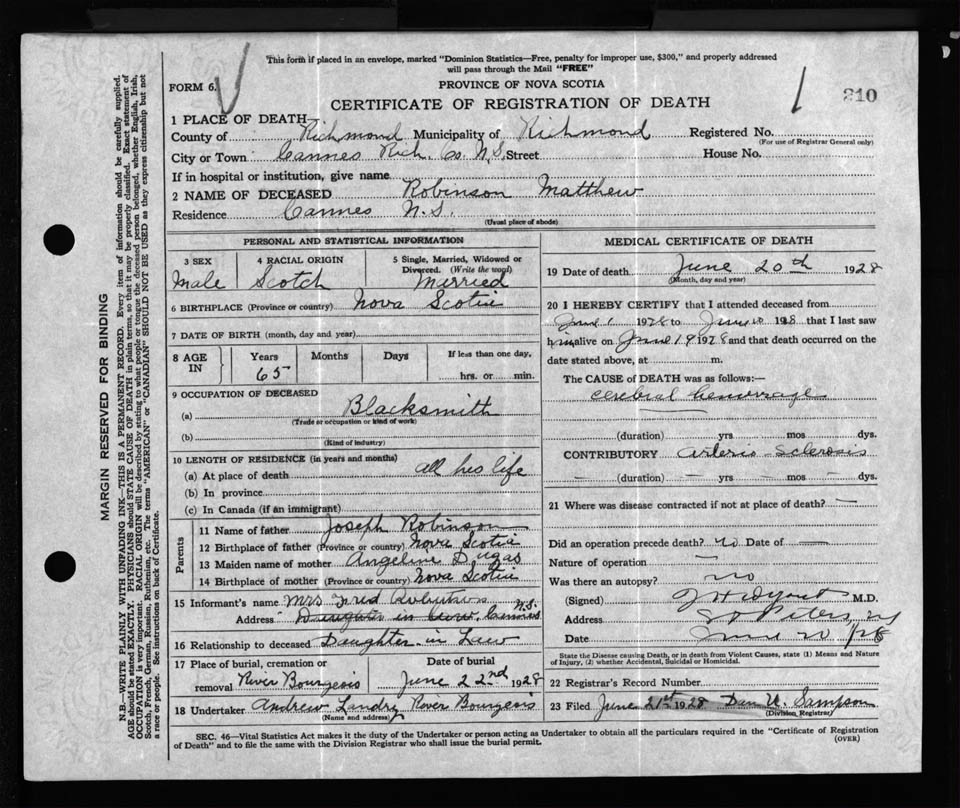 This form if placed in an envelope, marked "Dominion Statistics—Free, penalty for improper use, $300," and properly addressed
will pass through the Mail "FREE"
FORM 6.
PROVINCE OF NOVA SCOTIA
1 210
CERTIFICATE OF REGISTRATION OF DEATH
1 PLACE OF DEATH
County of Richmond Municipality of Richmond Registered No.
(For use of Registrar General only)
City or Town Cannes Rich. Co. N.S. Street House No.
If in hospital or institution, give name
2 NAME OF DECEASED Robinson Matthew
Residence Cannes N.S.
(Usual place of abode)
PERSONAL AND STATISTICAL INFORMATION
3 SEX 4 RACIAL ORIGIN 5 Single, Married, Widowed or Divorced. (Write the word)
Male Scotch Married
6 BIRTHPLACE (Province or country) Nova Scotia
7 DATE OF BIRTH (month, day and year)
8 AGE IN Years Months Days If less than one day,
65 hrs. or min.
9 OCCUPATION OF DECEASED
(a) Blacksmith
(Trade or occupation or kind of work)
(b)
(Kind of industry)
10 LENGTH OF RESIDENCE (in years and months)
(a) At place of death all his life
(b) In province
(c) In Canada (if an immigrant)
Parents
11 Name of father Joseph Robinson
12 Birthplace of father (Province or country) Nova Scotia
13 Maiden name of mother Angeline Dugas
14 Birthplace of mother (Province or country) Nova Scotia
15 Informant's name Mrs Fred
Address Daughter in Law. Cannes N.S.
16 Relationship to deceased Daughter in Law
17 Place of burial, cremation or Date of burial
removal River Bourgeois June 22nd 1928
18 Undertaker Andrew Landry River Bourgeois
(Name and address)
MEDICAL CERTIFICATE OF DEATH
19 Date of death June 20th 1928
(Month, day and year)
20 I HEREBY CERTIFY that I attended deceased from
June 1 1928 to June 20 1928 that I last saw
him alive on June 19 1928 and that death occurred on the
date stated above, at m.
The CAUSE of DEATH was as follows:—
cerebral hemorrage
(duration) yrs mos dys.
CONTRIBUTORY arterio-sclerosis
(duration) — yrs — mos — dys.
21 Where was disease contracted if not at place of death? —
Did an operation precede death? no Date of —
Nature of operation —
Was there an autopsy? no
(Signed) M.D.
Address St Peters, NS
Date June 20/28
State the Disease causing Death, or in death from Violent Causes, state (1) Means and Nature
of Injury, (2) whether Accidental, Suicidal or Homicidal.
22 Registrar's Record Number
23 Filed June 21st 1928 Dan U. Sampson
(Division Registrar)
SEC. 46—Vital Statistics Act makes it the duty of the Undertaker or person acting as Undertaker to obtain all the particulars required in the "Certificate of Registration
of Death" and to file the same with the Division Registrar who shall issue the burial permit.
(OVER)
MARGIN RESERVED FOR BINDING
N.B.—WRITE PLAINLY WITH UNFADING INK—THIS IS A PERMANENT RECORD. Every item of information should be carefully supplied.
AGE should be stated EXACTLY. PHYSICIANS should STATE CAUSE OF DEATH in plain terms, so that it may be properly classified. Exact statement of
OCCUPATION is very important. RACIAL ORIGIN will be described by stating to what people or tongue the deceased person belonged, whether English, Irish,
Scotch, French, German, Russian, Ruthenian, etc. The terms "AMERICAN" or "CANADIAN" SHOULD NOT BE USED as they express citizenship but not
a race or people. See instructions on back of Certificate.